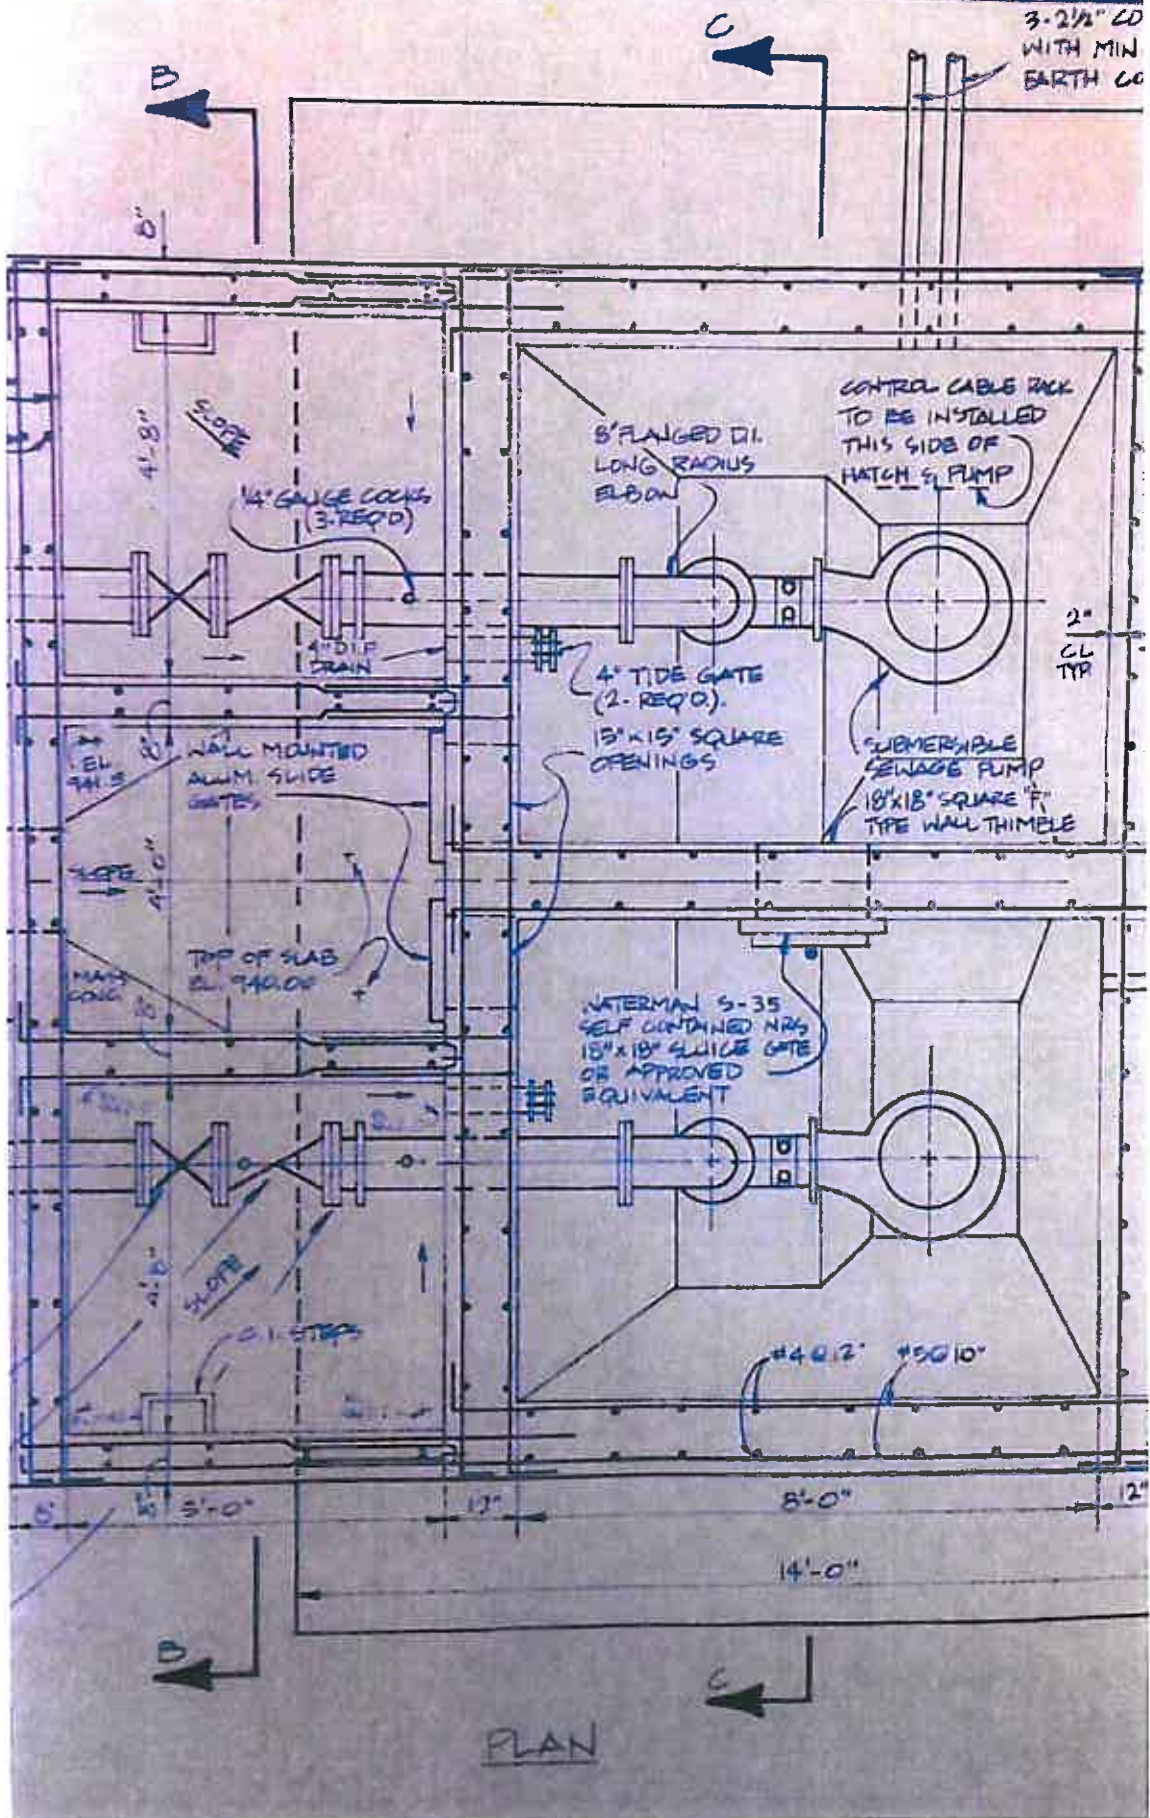 3-2½" CO
WITH MIN
EARTH CO
C
B
8"
SLOPE
4'-8"
¼" GAUGE COCKS
(3-REQ'D)
8" FLANGED D.I.
LONG RADIUS
ELBOW
CONTROL CABLE RACK
TO BE INSTALLED
THIS SIDE OF
HATCH & PUMP
2"
CL
TYP
4" D.I.P
DRAIN
4" TIDE GATE
(2-REQ'D.)
15" x 15" SQUARE
OPENINGS
SUBMERSIBLE
SEWAGE PUMP
18"x18" SQUARE "F"
TYPE WALL THIMBLE
8"
EL
941.5
WALL MOUNTED
ALUM. SLIDE
GATES
SLOPE
4'-0"
TOP OF SLAB
EL. 940.00
CONC.
8"
WATERMAN S-35
SELF CONTAINED NRS
18" x 18" SLUICE GATE
OR APPROVED
EQUIVALENT
4'-8"
SLOPE
C.I. STEPS
#4@12" #5@10"
8" 8" 5'-0" 12" 8'-0" 12"
14'-0"
B
C
PLAN